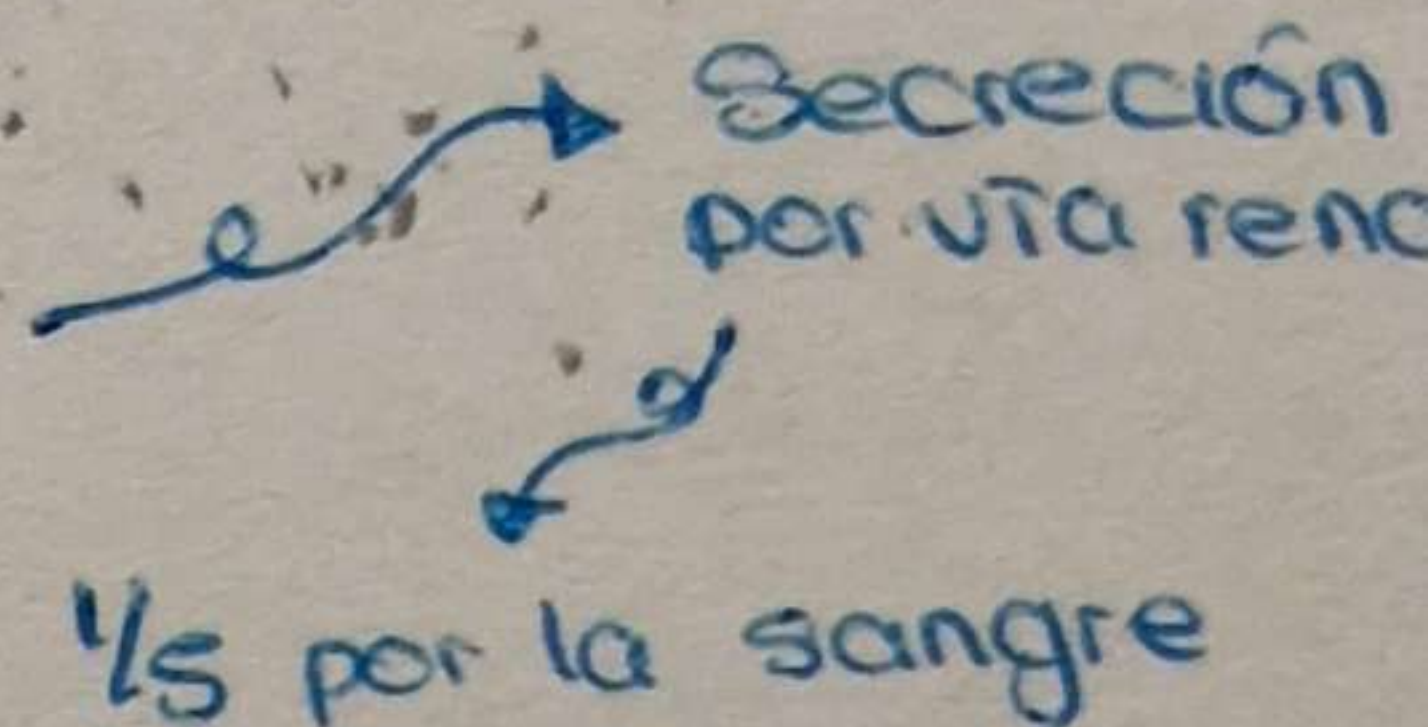 Secreción
por vía rena
1/5 por la sangre